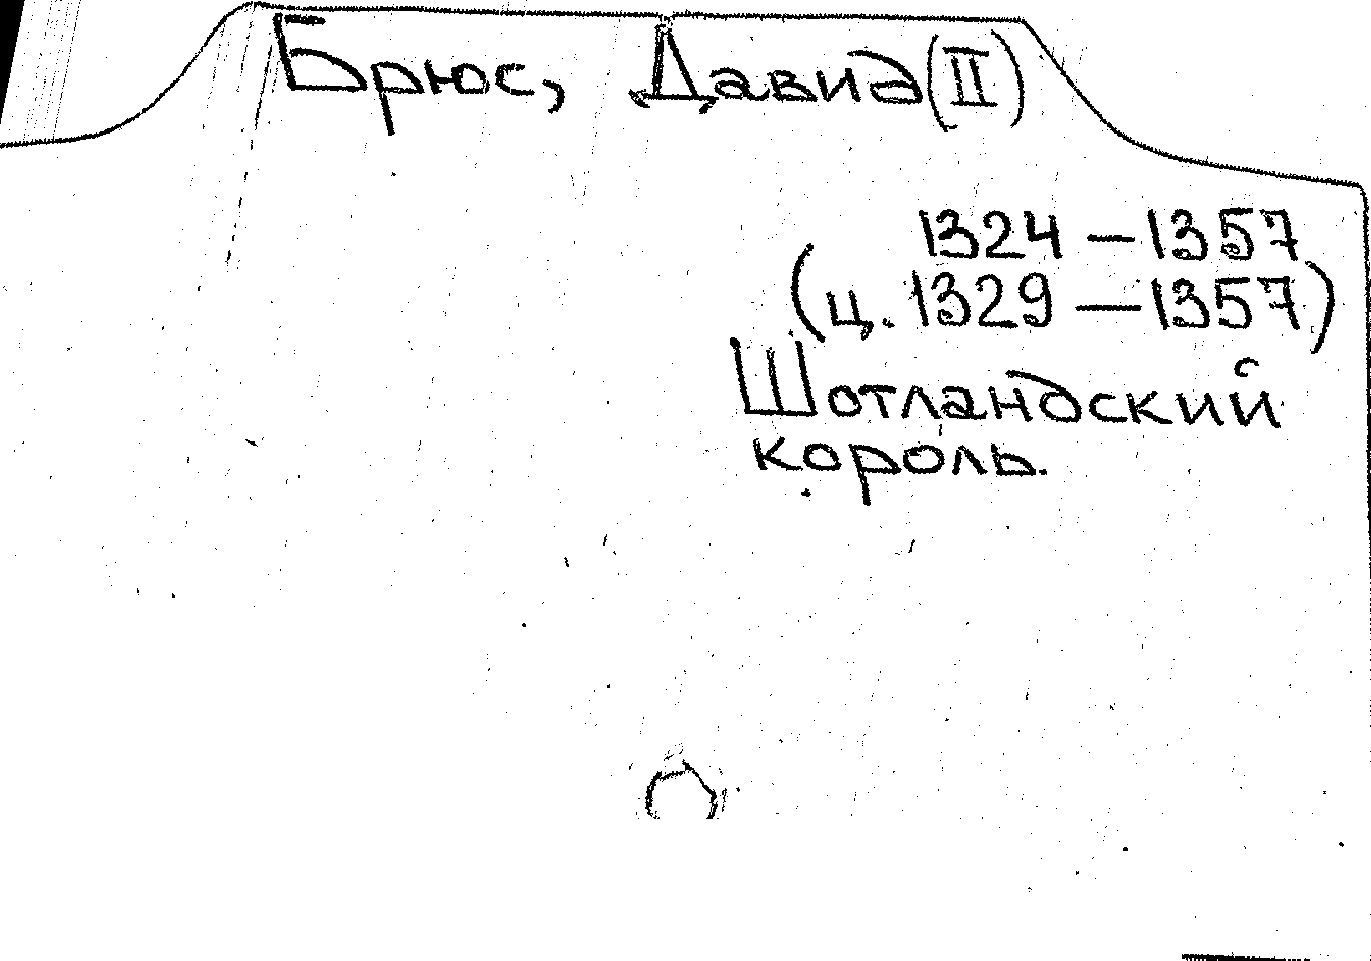 Брюс, Давид (II)
1324 – 1357
(ц. 1329 – 1357)
Шотландский
король.